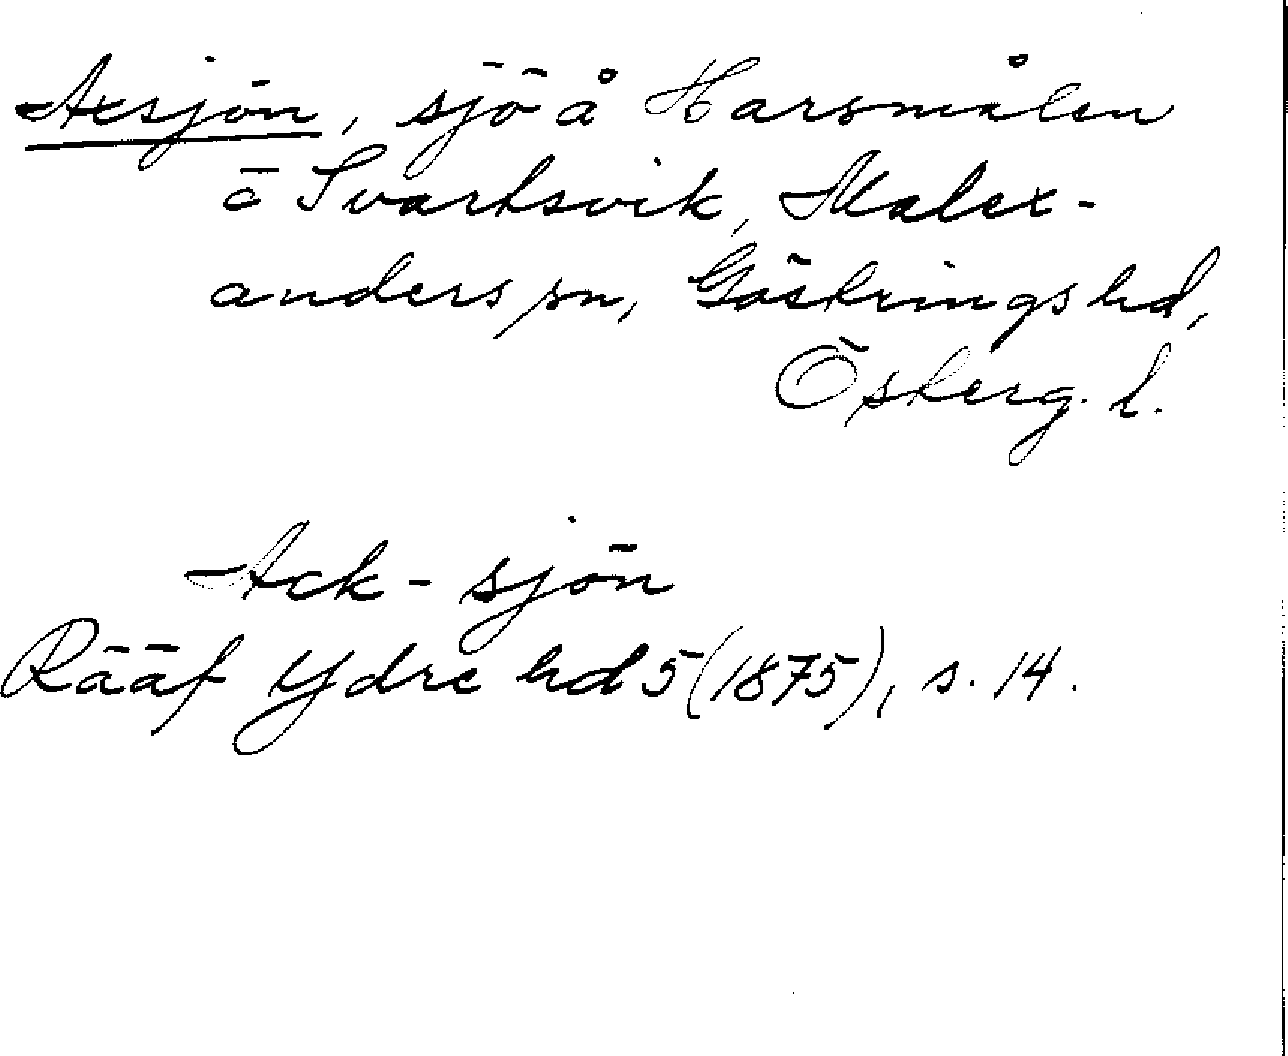 Axsjön, sjö å Harsmålen
ö Svartsvik, Malex-
anders sn, Göstrings hd,
Österg. l.
Ack-sjön
Rääf Ydre hd 5 (1875), s. 14.